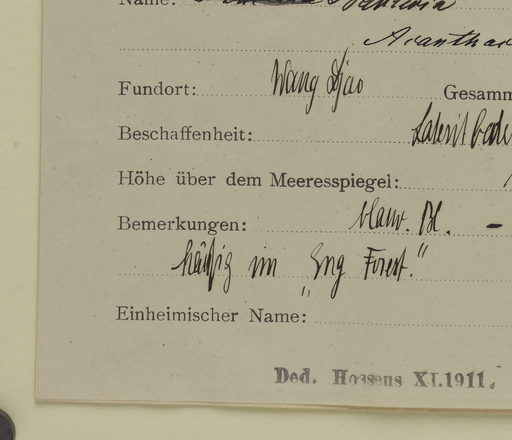 Name:
Acanthac
Fundort: Wang Djao Gesamm
Beschaffenheit: Laterit bode
Höhe über dem Meeresspiegel:
Bemerkungen: blauw. Bl. –
häufig im „Eng Forest.“
Einheimischer Name:
Ded. Hosseus XI.1911.